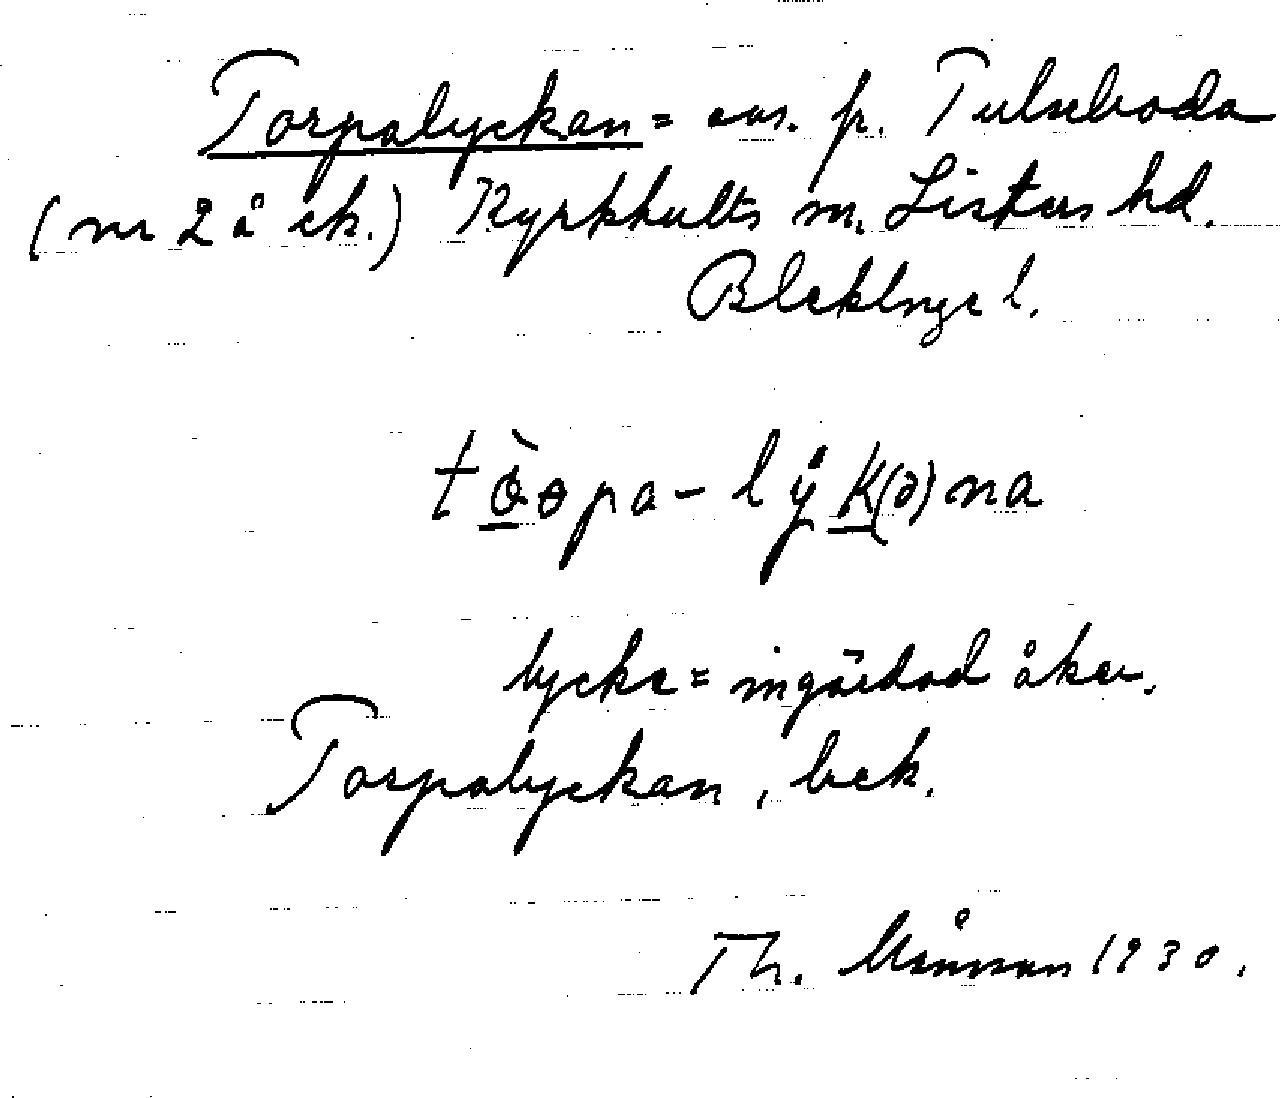 Torpalyckan = avs. fr. Tulseboda
(nr 2 å ek.) Kyrkhults sn. Listers hd.
Blekinge l.
tòopa-lyk(ə)na
lycka = ingärdad åker.
Torpalyckan, bek.
Th. Månsson 1930.